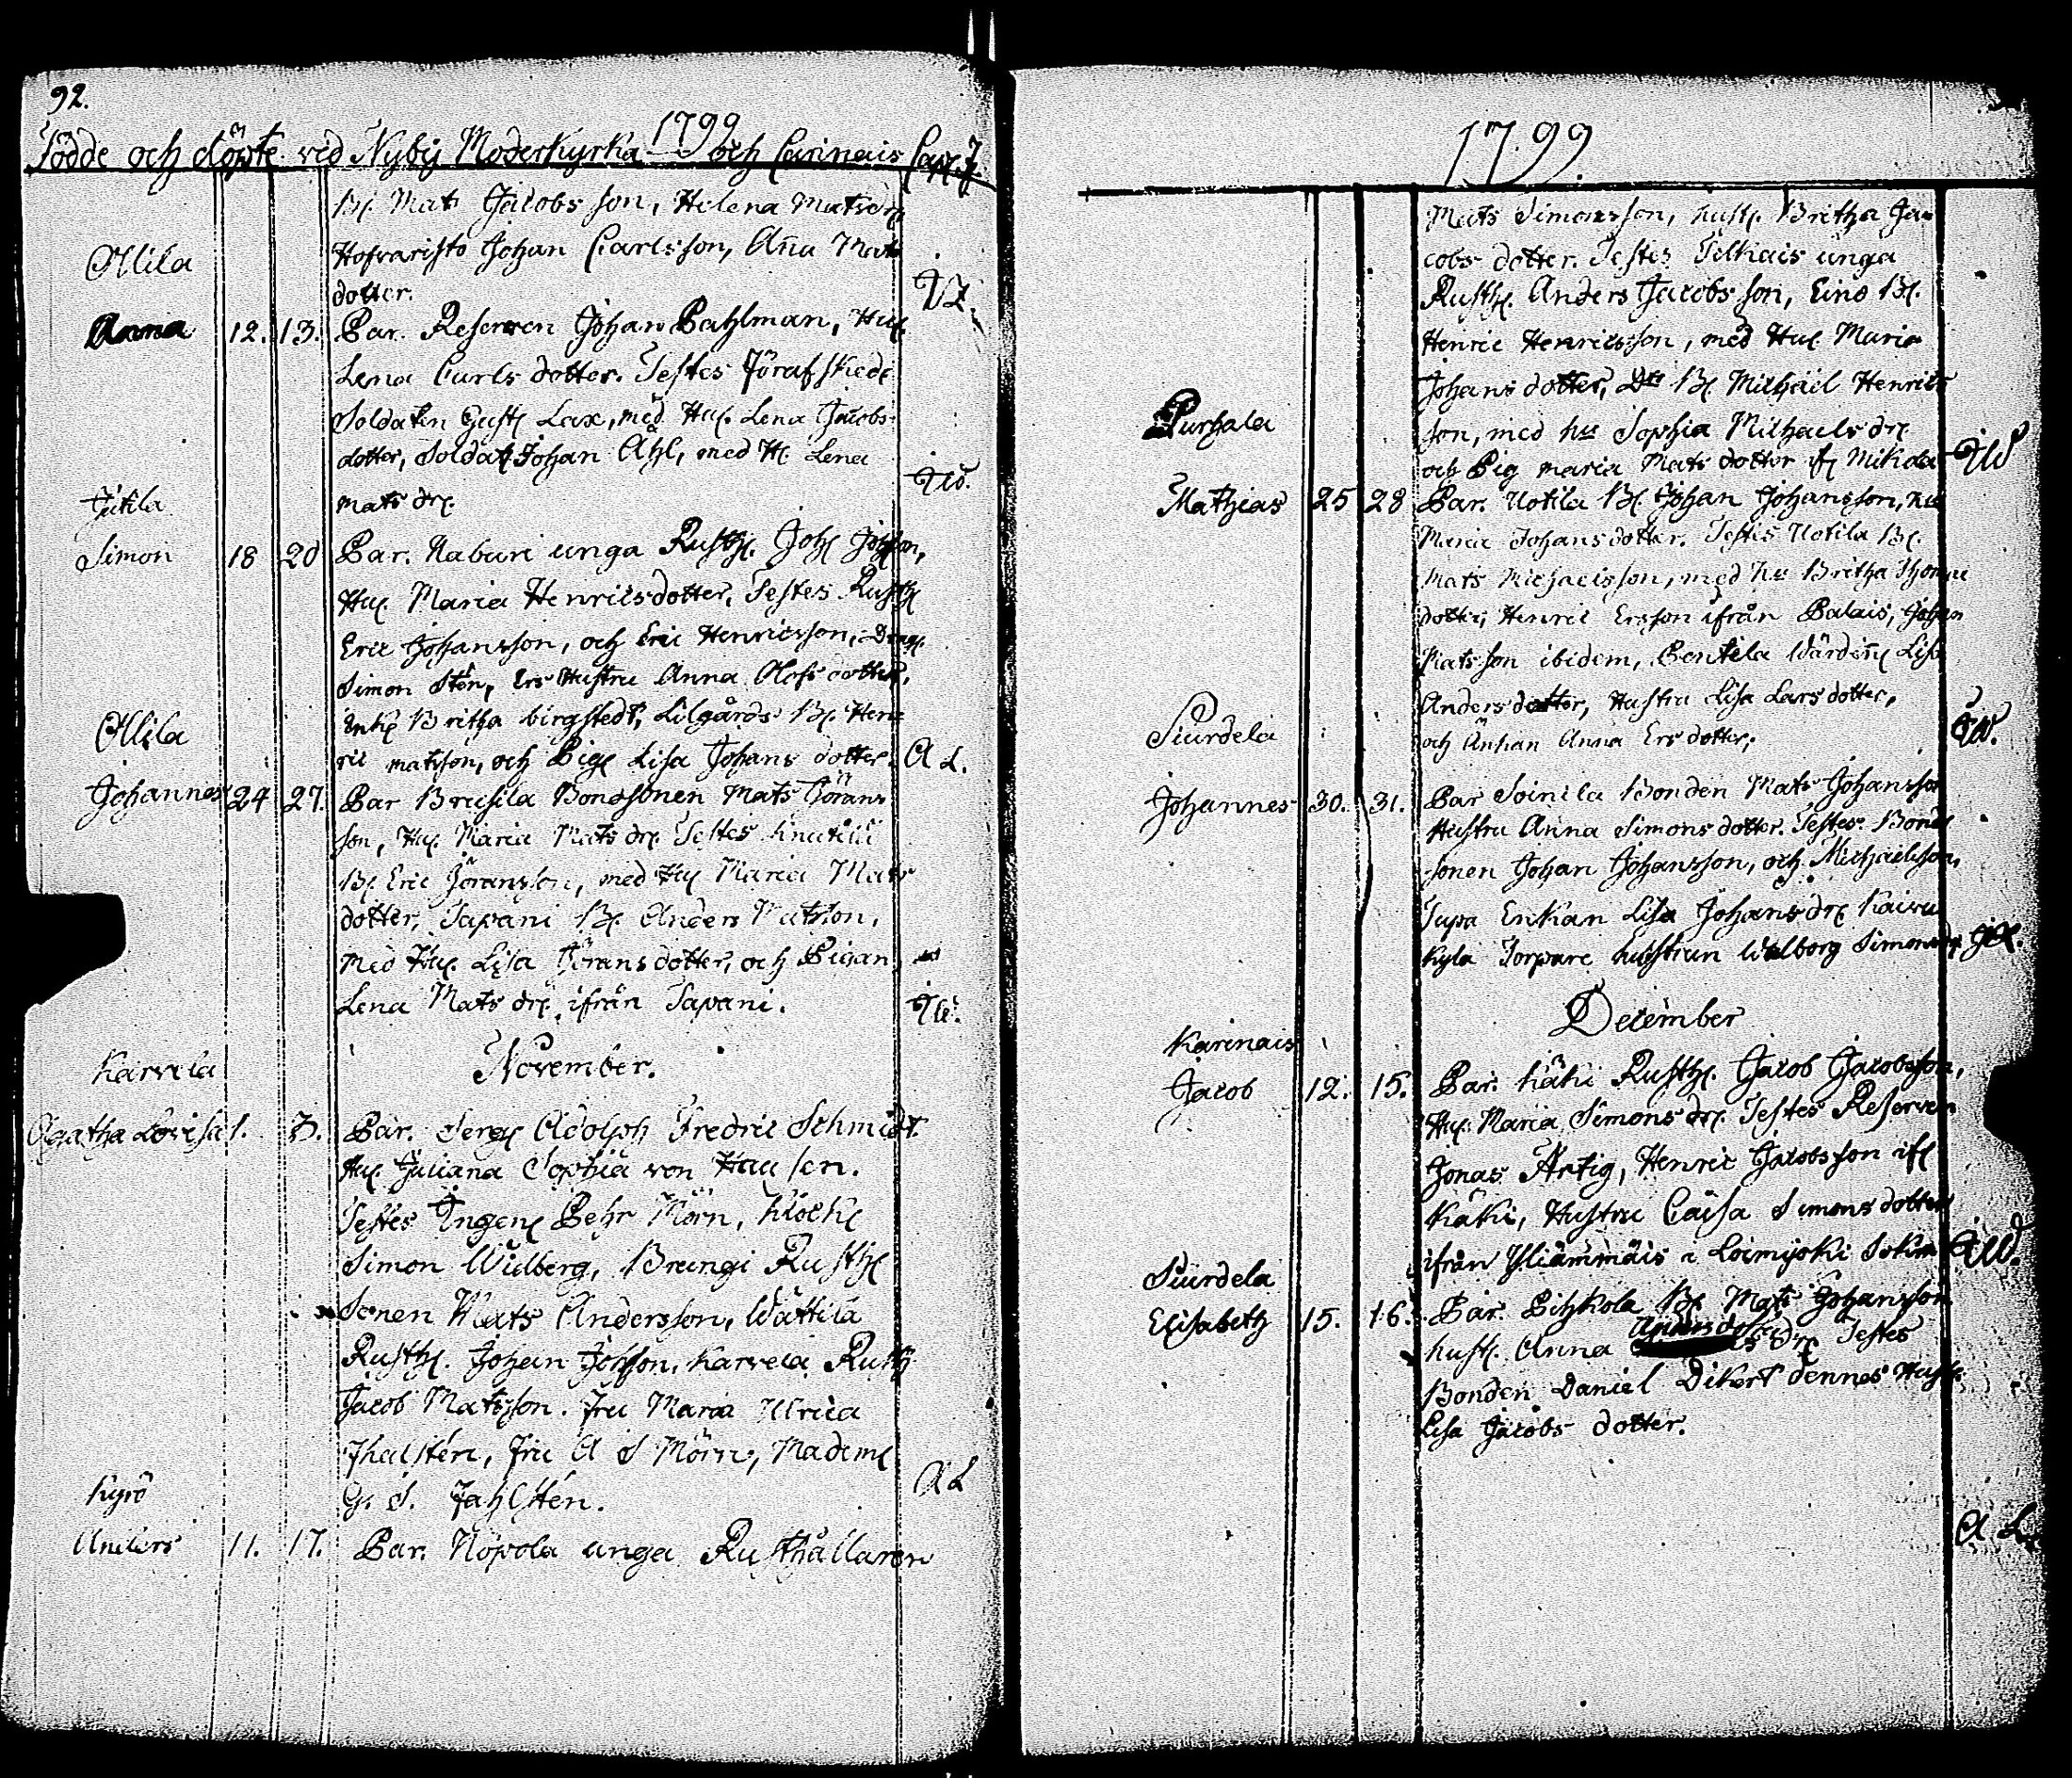 92.
1799
Födde och döpte vid Nyby Moderkyrka och Carinais Cap.
B. Mats Jacobs son, Helena Mats dr
Hofvaristo Johan Carlsson, Aña Mats
Ollila
dotter.
Anna 12. 13. Par. Reserven Johan Pahlman, Hu.
Lena Carls dotter. Testes
Soldaten Gust. Lax, med Hu. Lena Jacobs
dotter, Soldat Johan Ahl, med H. Lena
Jutila mats dr.
Simon 18 20 Par. Naburi unga Rusth. Joh Johsson,
Hu. Maria Henricsdotter, Testes Rusth
Eric Johansson, och Eric Henricsson, Drag.
Simon Stén, Ers Hustru Anna Olofs dotter,
Enk. Britha birgstedt, Lilgårds B. Hen
Ollila
ric matsson, och Pig. Lisa Johans dotter. A L.
Johannes 24 27. Par Brusila Bondsonen Mats Görans
son, Hu. Maria Mats dr. Testes Knutila
B. Eric Göransson, med Hu Maria Mats
dotter, Tapani B. Anders Matsson,
med Hu. Lisa Görans dotter, och Pigan
Lena Mats dr. ifrån Tapani.
November.
Karvela
Agatha Lovisa 1. 3. Par. Serg. Adolph Fredric Schmidt.
Hu. Juliana Sophia von Hausen.
Testes Ingen. Pehr Mörn, Klock.
Simon Widberg, Braungi Rusth
Sonen Mats Andersson, Wättilä
Rusth. Johan Johsson, Karvela Rusth
Jacob Matsson. fru Maria Ulrica
Thalstén, fru A S Mörn, Madem
G. S. Fahlstén. A L
Kyrö
Anders 11. 17. Par. Nöpola unga Rusthållaren
1799.
Mats Simonsson, hust. Britha Ja
cobs dotter. Testes Tilkais unga
Rusth. Anders Jacobs son, Eino B.
Henric Henricsson, med Hu. Maria
Johans dotter, Dto B. Michäel Henrics
Purhala
son, med hu Sophia Michaels dr.
och Pig maria Mats dotter if. Mikola
Mathias 25 28 Par. Uotila B. Johan Johansson, hu
Maria Johansdotter. Testes Uotila B.
Mats Michaelsson, med hu Britha Thomae
dotter, Henric Ersson ifrån Palais, Johan
Matsson ibidem, Pentila Lisa
Anders dotter, Hustru Lisa Lars dotter,
Siurdela
och Änkan Anna Ers dotter.
Johannes 30. 31. Par Soinila Bonden Mats Johansson
Hustru Anna Simons dotter. Testes. Bond
sonen Johan Johansson, och Michaelsson,
Enkan Lisa Johans dr. Kairu
kyla Torpare hustrun Walborg Simonsdr
December
Karinais
Jacob 12. 15. Par. Käki Rusth. Jacob Jacobsson,
Hu. Maria Simons dr. Testes Reserven
Jonas Artig, Henric Jacobsson if.
Käki, Hustru Caisa Simons dotter
ifrån Yliämmäis i Loimijoki Sokn
Siurdela
Elisabeth 15. 16. Par. Pihkola B. Mats Johansson
hust. Anna Anders dr. Testes
Bonden Daniel Dikert dennes Hust.
Lisa Jacobs dotter.
A L.